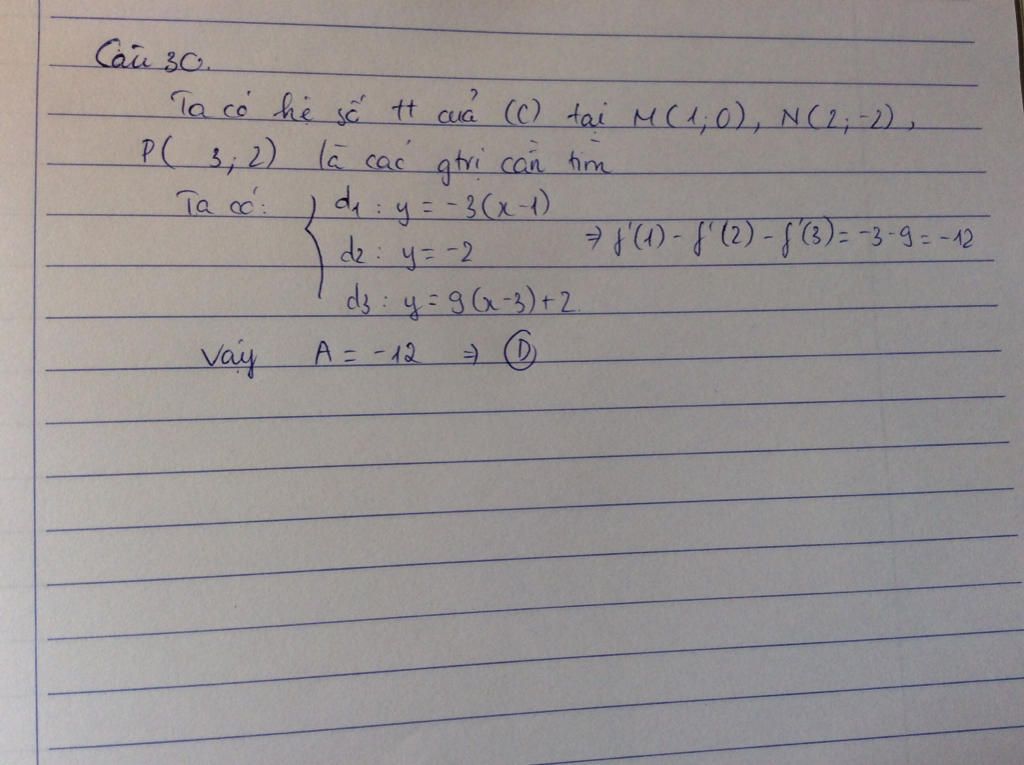 Câu 30.
Ta có hệ số tt của (C) tại M(1;0), N(2;-2),
P( 3;2) là các gtrị cần tìm
Ta có: d1 : y = -3(x-1)
d2 : y = -2 ⇒ f'(1) - f'(2) - f'(3) = -3-9 = -12
d3 : y = 9(x-3)+2.
Vậy A = -12 ⇒ D